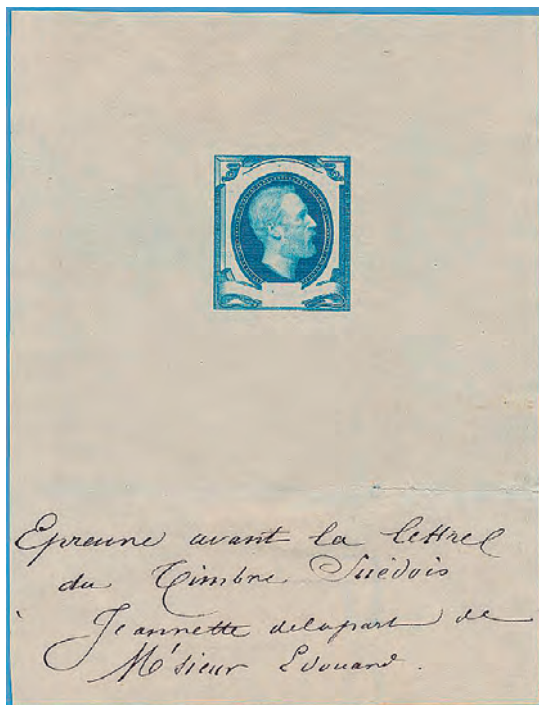 Epreuve avant la lettre
du Timbre Suédois
Jeannette delapart de
M'sieur Edouard.